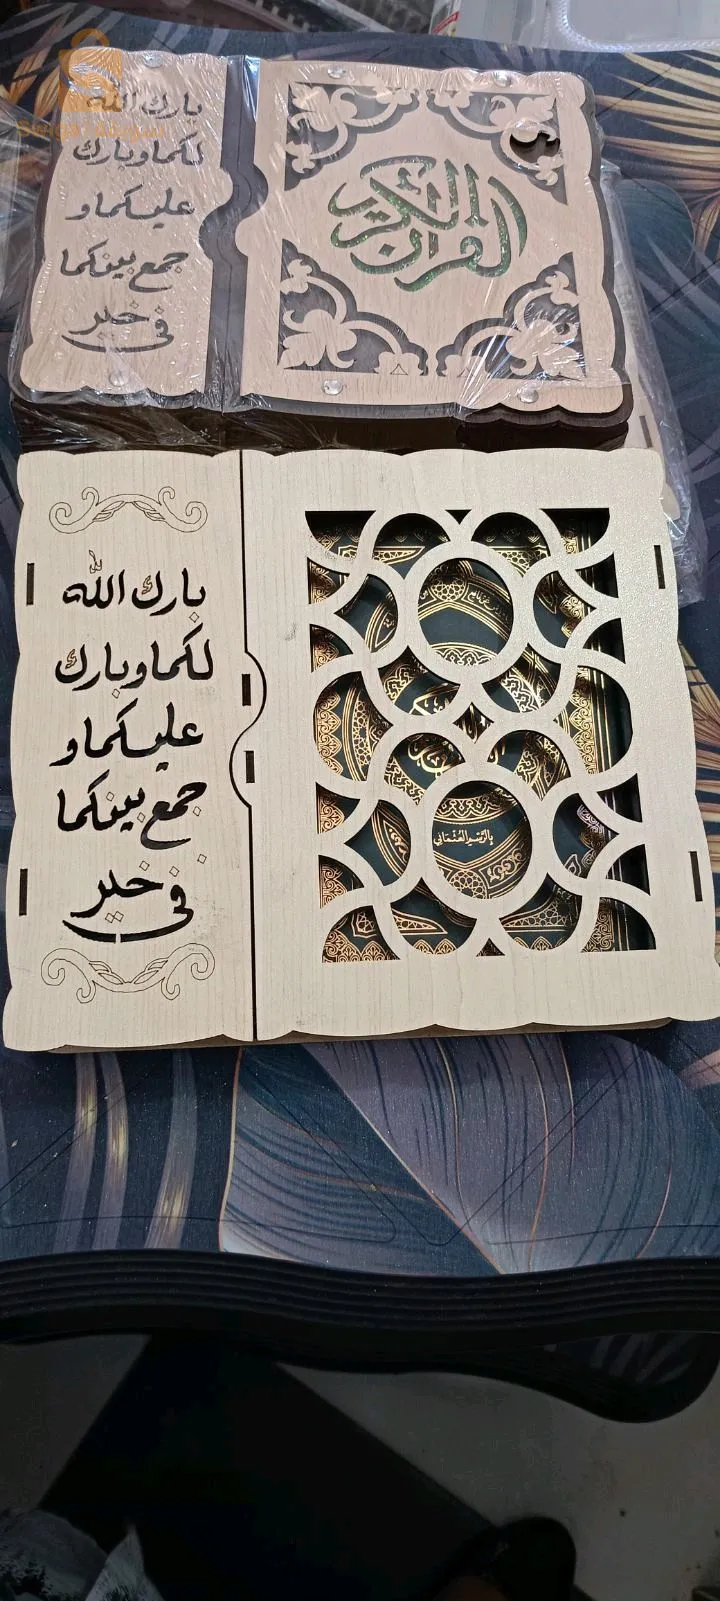 بارك الله
لكما وبارك
عليكما و
جمع بينكما
في خير
القرآن الكريم
بارك الله
لكما وبارك
عليكما و
جمع بينكما
في خير
بالرسم العثماني